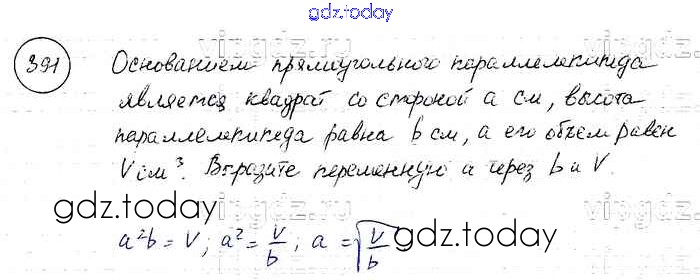 gdz.today
391 Основанием прямоугольного параллелепипеда
является квадрат со стороной a см, высота
параллелепипеда равна b см, а его объем равен
V см³. Выразите переменную a через b и V.
gdz.today
gdz.today
a²b = V; a² = V/b; a = √(V/b)